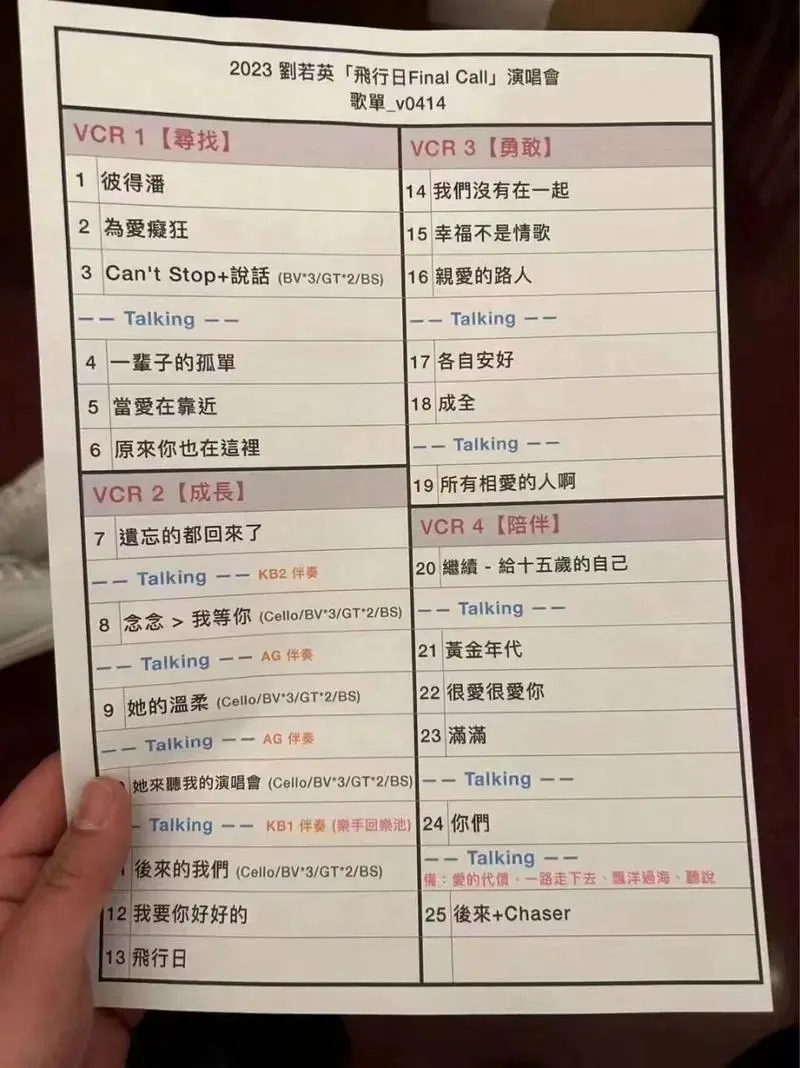 2023 劉若英「飛行日Final Call」演唱會
歌單_v0414
VCR 1【尋找】
1 彼得潘
2 為愛癡狂
3 Can't Stop+說話 (BV*3/GT*2/BS)
—— Talking ——
4 一輩子的孤單
5 當愛在靠近
6 原來你也在這裡
VCR 2【成長】
7 遺忘的都回來了
—— Talking —— KB2 伴奏
8 念念 > 我等你 (Cello/BV*3/GT*2/BS)
—— Talking —— AG 伴奏
9 她的溫柔 (Cello/BV*3/GT*2/BS)
—— Talking —— AG 伴奏
她來聽我的演唱會 (Cello/BV*3/GT*2/BS)
— Talking —— KB1 伴奏 (樂手回樂池)
後來的我們 (Cello/BV*3/GT*2/BS)
12 我要你好好的
13 飛行日
VCR 3【勇敢】
14 我們沒有在一起
15 幸福不是情歌
16 親愛的路人
—— Talking ——
17 各自安好
18 成全
—— Talking ——
19 所有相愛的人啊
VCR 4【陪伴】
20 繼續 - 給十五歲的自己
—— Talking ——
21 黃金年代
22 很愛很愛你
23 滿滿
—— Talking ——
24 你們
—— Talking ——
備：愛的代價、一路走下去、飄洋過海、聽說
25 後來+Chaser